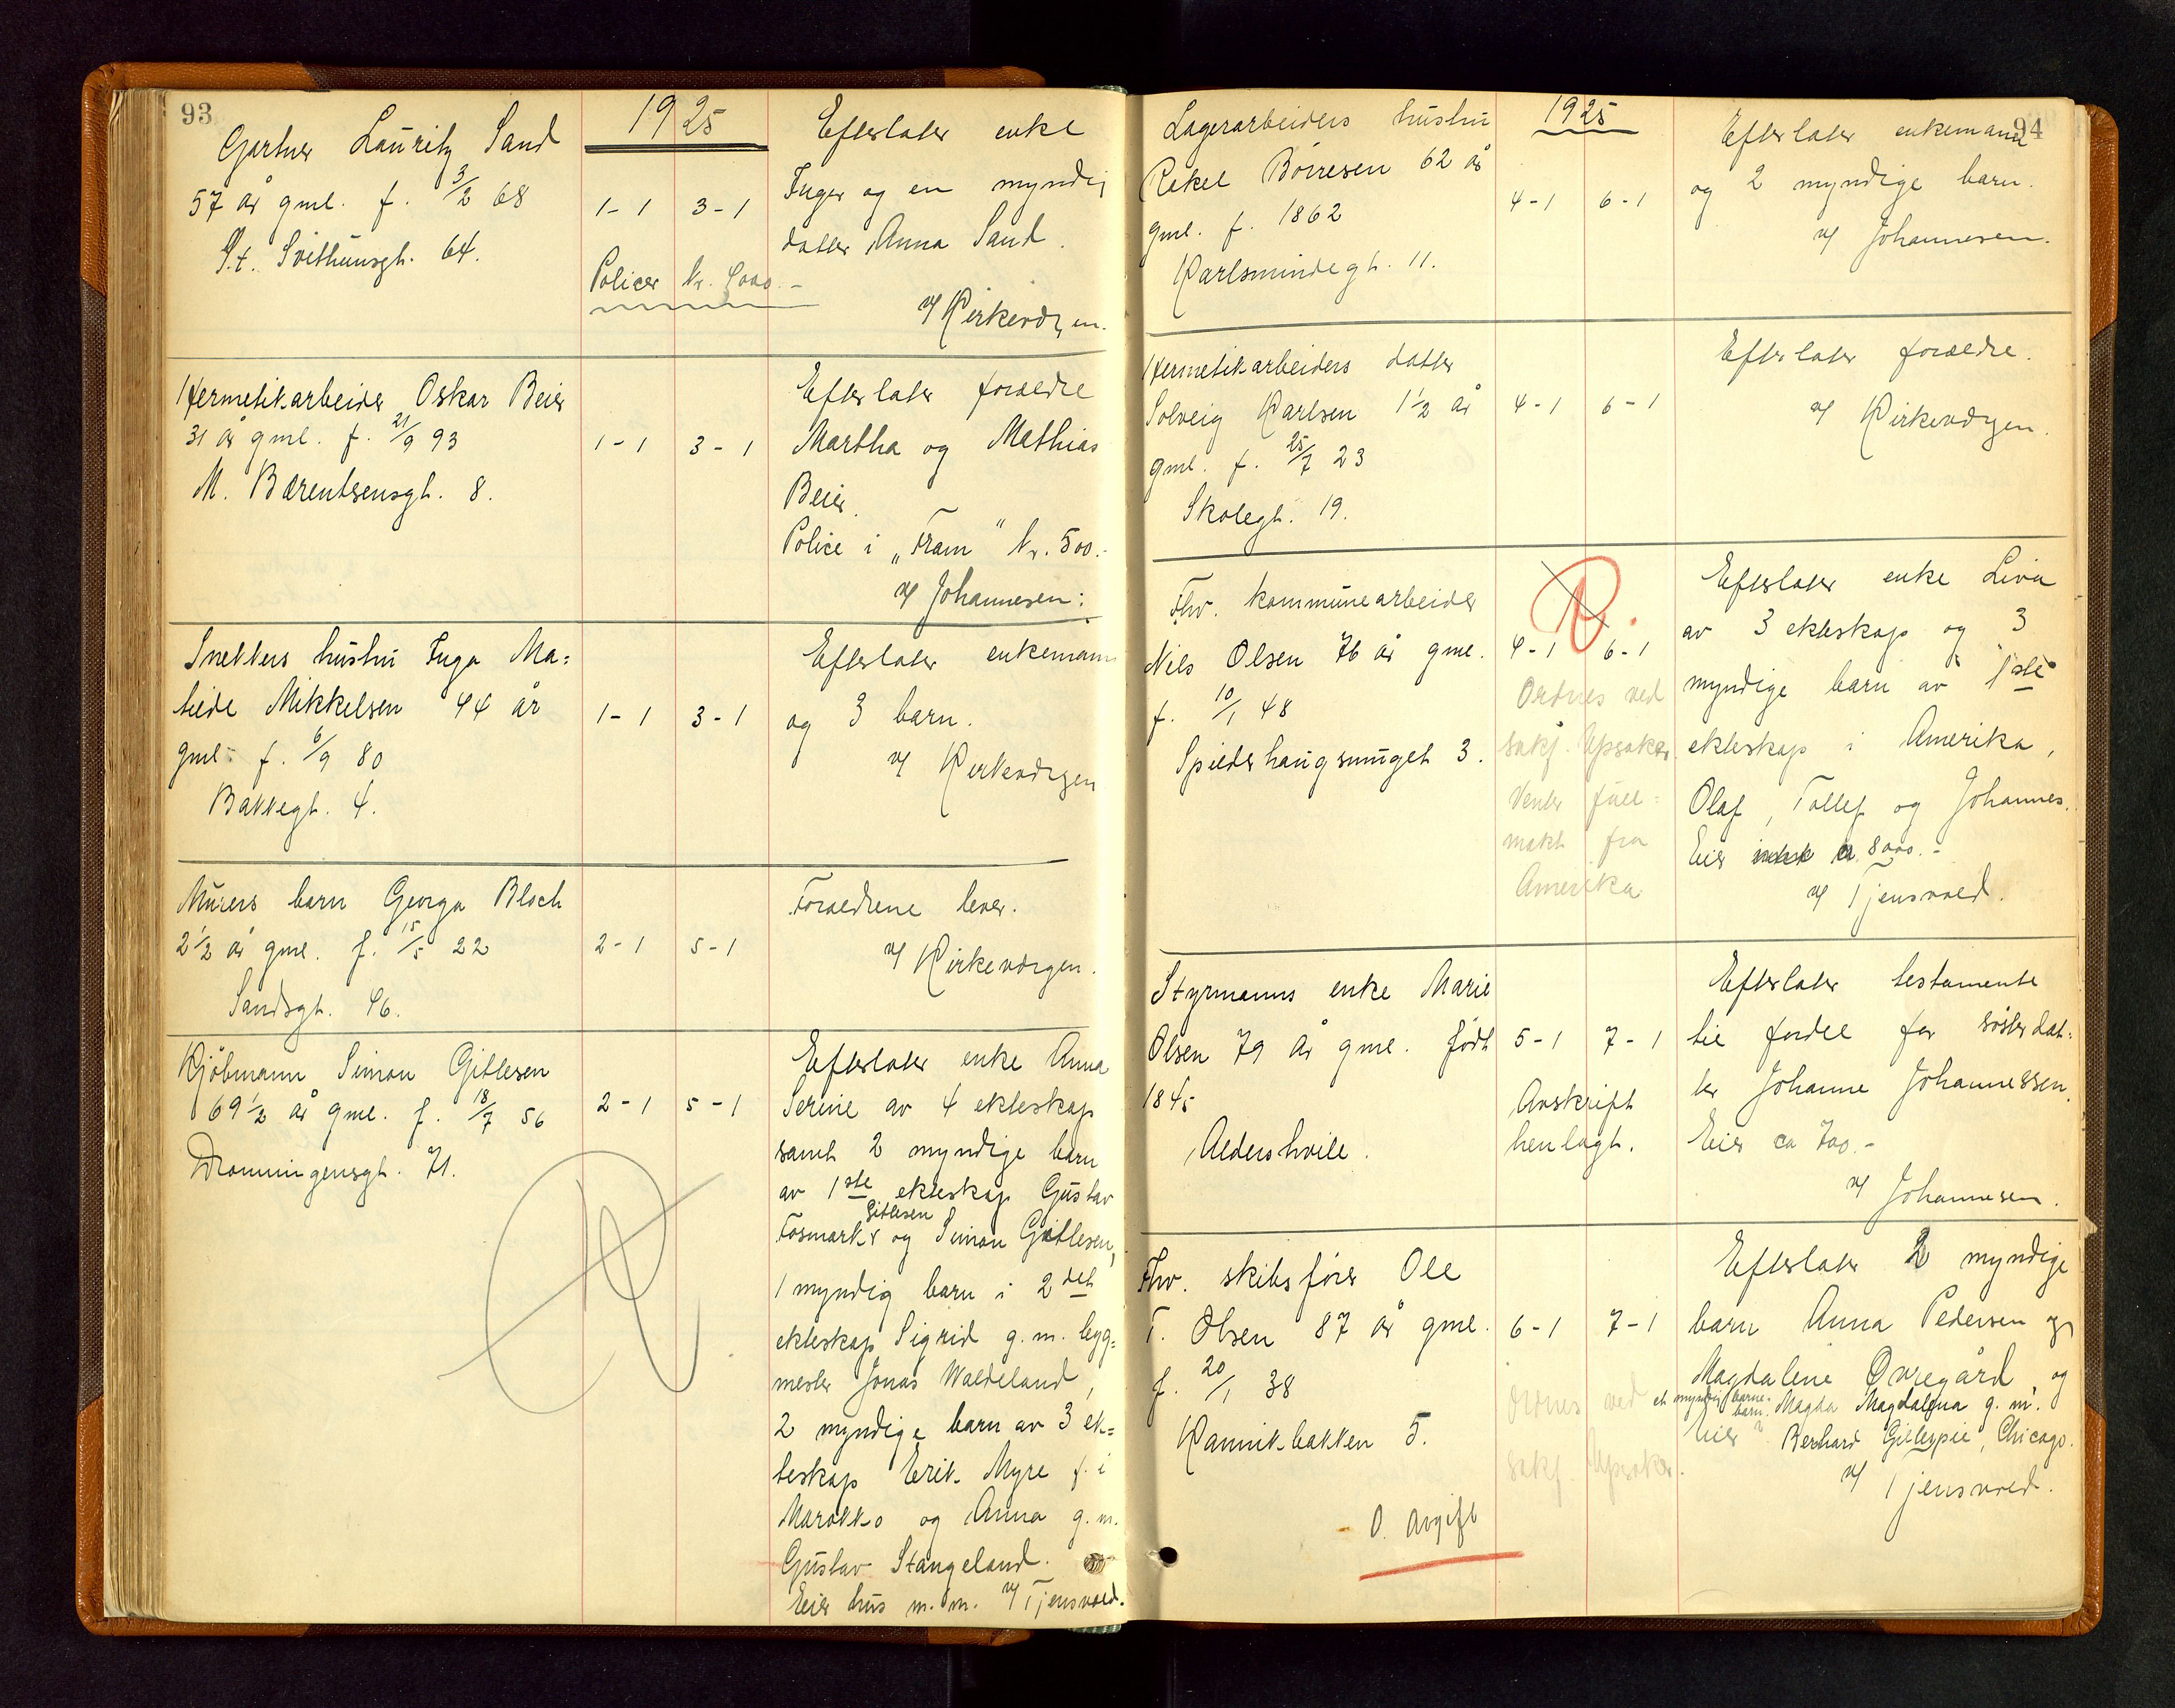 93
1925
Gartner Lauritz Sand
57 år gml. f. 3/2 68
St. Svithunsgt. 64.
1-1 3-1
Policer Kr. 9000.-
Efterlater enke
Inger og en myndig
datter Anna Sand.
v/ Kirkevergen.
Hermetikarbeider Oskar Beier
31 år gml. f. 21/9 93
M. Bærentsensgt. 8.
1-1 3-1
Efterlater forældre
Martha og Mathias
Beier.
Police i „Fram" Kr. 500.-
v/ Johannesen.
Snekkers hustru Inga Ma=
tilde Mikkelsen 44 år
gml. f. 6/9 80
Bakkegt. 4.
1-1 3-1
Efterlater enkemann
og 3 barn.
v/ Kirkevergen
Murers barn Georga Bloch
2 1/2 år gml. f. 15/5 22
Sandsgt. 46.
2-1 5-1
Forældrene lever.
v/ Kirkevergen.
Kjöbmann Simon Gitlesen
69 1/2 år gml. f. 18/7 56
Dronningensgt. 71.
2-1 5-1
Efterlater enke Anna
Serine av 4 ekteskap
samt 2 myndige barn
av 1ste ekteskap Gustav
Gitlesen
Fosmark og Simon Gitlesen,
1 myndig barn i 2det
ekteskap Sigrid g.m. byg=
mester Jonas Waldeland,
2 myndige barn av 3 ek=
teskap Erik Myre f. i
Marokko og Anna g.m.
Gustav Stangeland.
Eier hus m.m. v/ Tjensvold.
94
1925
Lagerarbeiders hustru
Rakel Börresen 62 år
gml. f. 1862
Karlsmindegt. 11.
4-1 6-1
Efterlater enkemann
og 2 myndige barn.
v/ Johannesen.
Hermetikarbeiders datter
Solveig Karlsen 1 1/2 år
gml. f. 25/7 23
Skolegt. 19.
4-1 6-1
Efterlater forældre.
v/ Kirkevergen.
Fhv. kommunearbeider
Nils Olsen 76 år gml.
f. 10/1 48
Spilderhaugsmuget 3.
4-1 6-1
Ordnes ved
sakf. Upsaker
Venter full=
makt fra
Amerika
Efterlater enke Liva
av 3 ekteskap og 3
myndige barn av 1ste
ekteskap i Amerika,
Olaf, Tollef og Johannes.
Eier 8000.-
v/ Tjensvold.
Styrmanns enke Marie
Olsen 79 år gml. födt
1845
Aldershvile.
5-1 7-1
Avskrift
henlagt.
Efterlater testamente
til fordel for sösterdat=
ter Johanne Johannessen.
Eier ca 700.-
v/ Johannesen.
Fhv. skibsförer Ole
T. Olsen 87 år gml.
f. 20/1 38
Kannikbakken 5.
6-1 7-1
Ordnes ved
sakf. Upsaker.
O. Avgift
Efterlater 2 myndige
barn Anna Pedersen og
Magdalene Övregård og
et myndig barne-
barn. Magda Magdalena g.m.
Eier ? Berhard Gillespie, Chicago.
v/ Tjensvold.